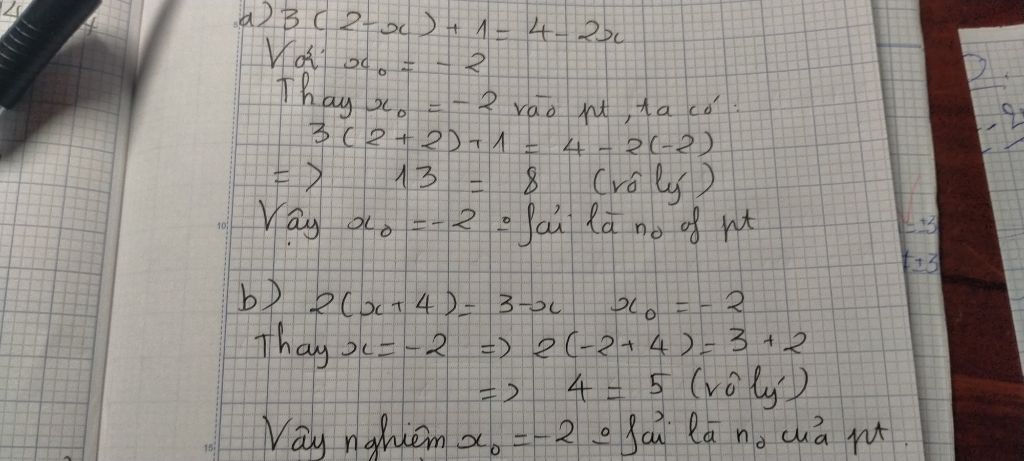 a) 3(2-x)+1 = 4-2x
Với x₀ = -2
Thay x₀ = -2 vào pt, ta có:
3(2+2)+1 = 4-2(-2)
=> 13 = 8 (vô lý)
Vậy x₀ = -2 o fải là n₀ of pt
b) 2(x+4) = 3-x x₀ = -2
Thay x = -2 => 2(-2+4) = 3+2
=> 4 = 5 (vô lý)
Vậy nghiệm x₀ = -2 o fải là n₀ của pt.